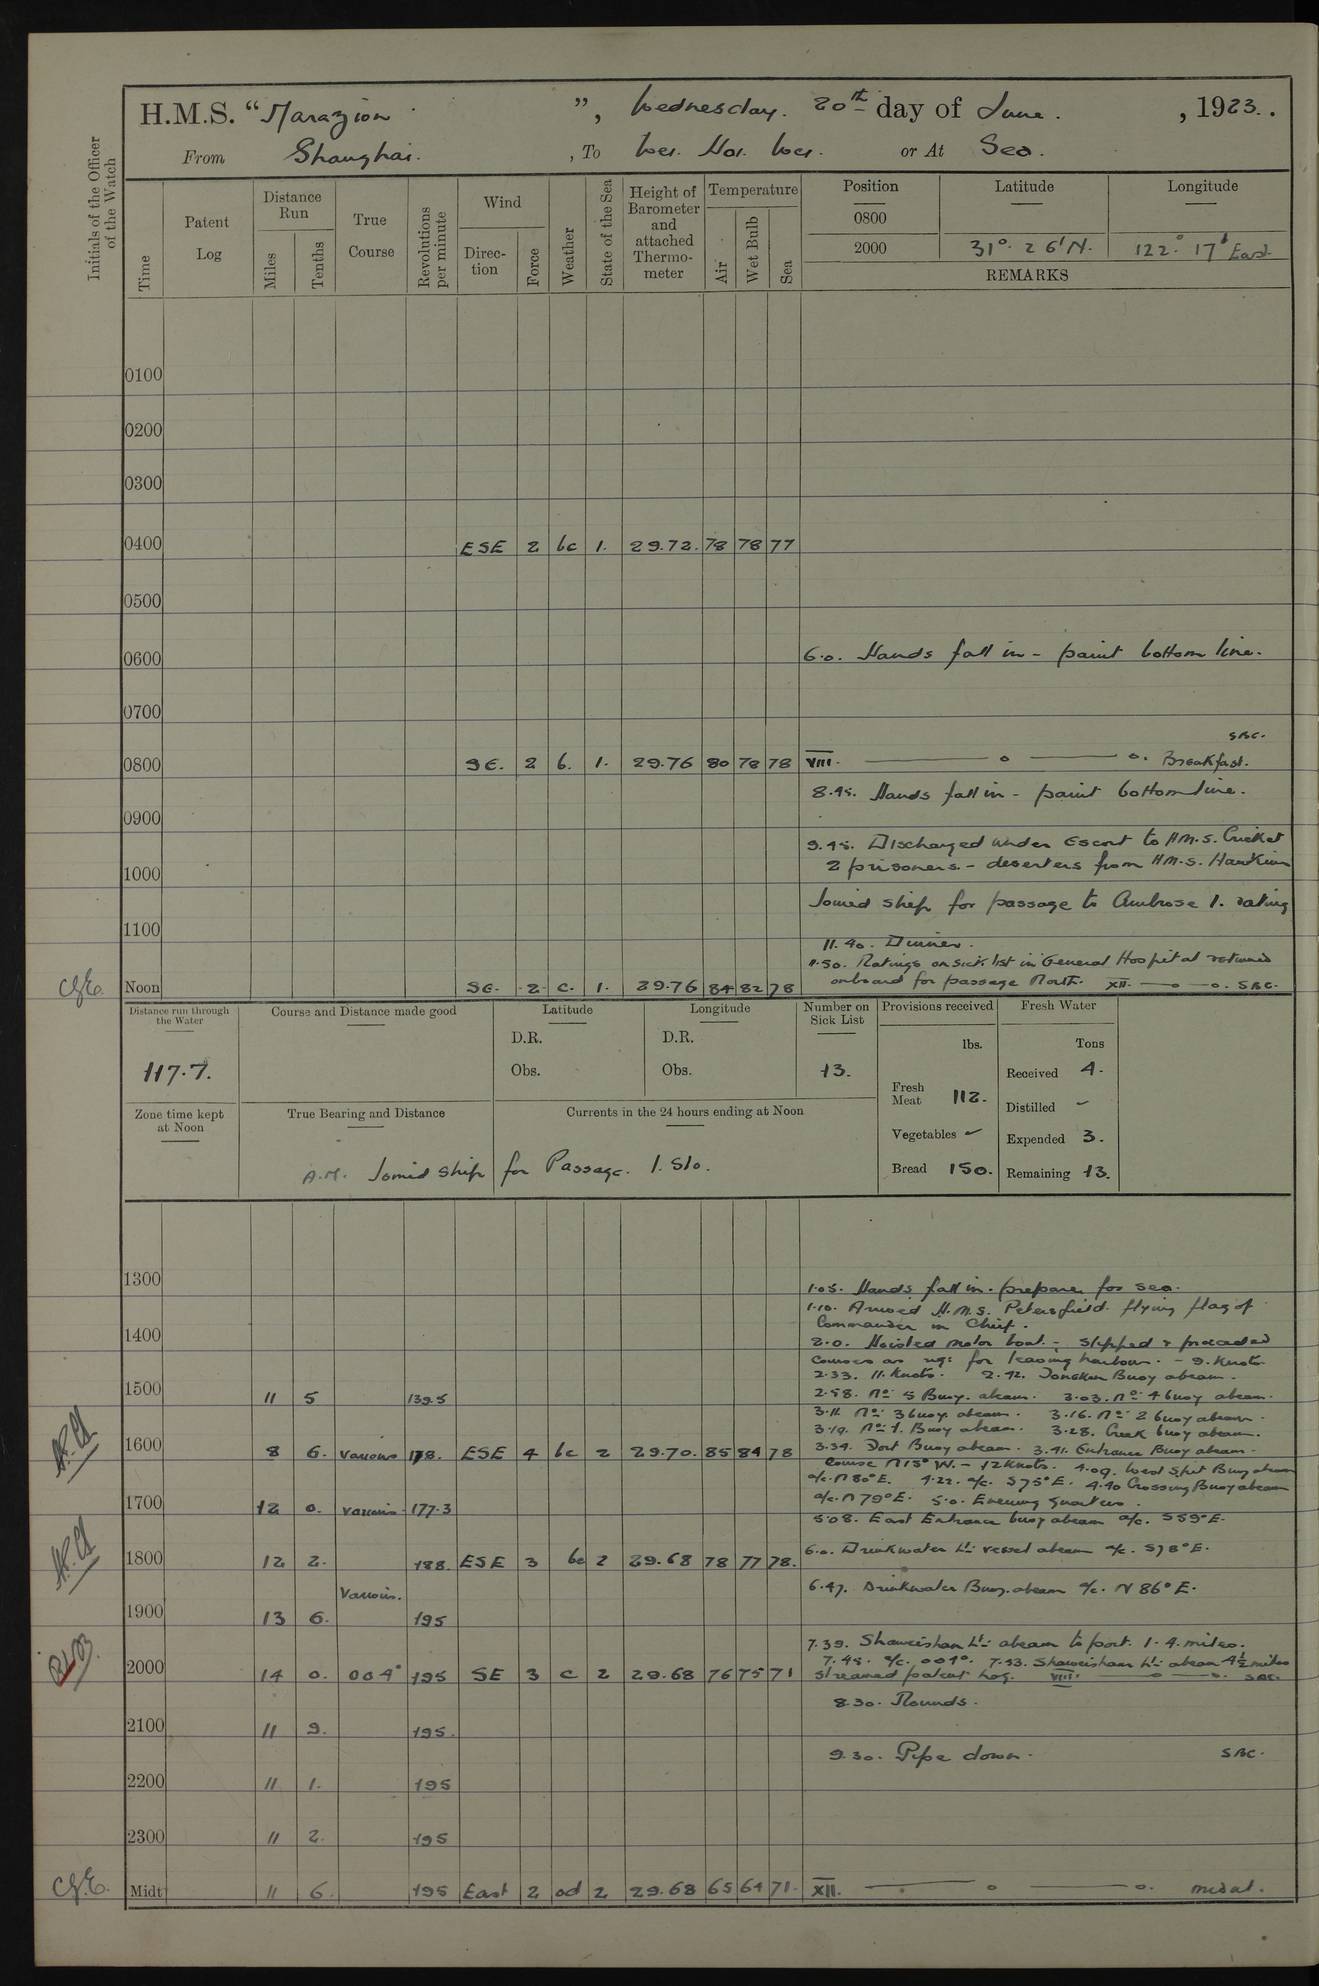 H.M.S. “Marazion ”, Wednesday. 20th day of June. , 1923..
From Shanghai. , To Wei. Hai. Wei. or At Sea.
Initials of the Officer of the Watch
Time
Patent Log
Distance Run
Miles
Tenths
True Course
Revolutions per minute
Wind
Direc-tion
Force
Weather
State of the Sea
Height of Barometer and attached Thermo-meter
Temperature
Air
Wet Bulb
Sea
Position Latitude Longitude
0800
2000 31°. 26'N. 122.° 17' East.
REMARKS
0100
0200
0300
0400 ESE 2 bc 1. 29.72. 78 78 77
0500
0600 6.0. Hands fall in - paint bottom line.
0700
SBC.
0800 SE. 2 b. 1. 29.76 80 78 78 VIII. o o. Breakfast.
8.45. Hands fall in - paint bottom line.
0900
9.45. Discharged under Escort to H.M.S. Cricket
1000 2 prisoners. - deserters from H.M.S. Hawkins
Joined ship for passage to Ambrose 1. rating
1100
11.40. Dinner.
11.50. Ratings on sick list in General Hospital returned
onboard for passage North. XII. o o. SBC.
CGE. Noon SE. 2 c. 1. 29.76 84 82 78
Distance run through the Water
117.7.
Course and Distance made good
Latitude
D.R.
Obs.
Longitude
D.R.
Obs.
Number on Sick List
13.
Provisions received
lbs.
Fresh Meat 112.
Vegetables -
Bread 150.
Fresh Water
Tons
Received 4.
Distilled -
Expended 3.
Remaining 13.
Zone time kept at Noon
True Bearing and Distance
Currents in the 24 hours ending at Noon
A.M. Joined ship for Passage. 1. Sto.
1300 1.05. Hands fall in. prepare for sea.
1.10. Arrived H.M.S. Petersfield. flying flag of
1400 Commander in Chief.
2.0. Hoisted motor boat. - slipped & proceeded
courses as req: for leaving harbour. - 9. Knots
2.33. 11. Knots. 2.42. Buoy abeam.
1500 11 5 139.5 2.58. No: 5 Buoy. abeam. 3.03. No: 4 buoy abeam.
3.11. No: 3 buoy. abeam. 3.16. No: 2 buoy abeam.
3.19. No: 1. Buoy abeam. 3.28. Creek buoy abeam.
1600 8 6. Various 178. ESE 4 bc 2 29.70. 85 84 78 3.34. Buoy abeam. 3.41. Entrance Buoy abeam.
Course N 15° W. - 12 Knots. 4.09. West Spit Buoy abeam
a/c. N 80° E. 4.22. a/c. S 75° E. 4.40 Crossing Buoy abeam
1700 12 0. Various 177.3 a/c. N 79° E. 5.0. Evening quarters.
5.08. East Entrance buoy abeam a/c. S 59° E.
1800 12 2. 188. ESE 3 bc 2 29.68 78 77 78. 6.0. Drinkwater Lt: vessel abeam a/c. S 78° E.
Various. 6.47. Drinkwater Buoy. abeam a/c. N 86° E.
1900 13 6. 195
7.39. Shaweishan Lt: abeam to port. 1.4. miles.
7.45. a/c. 004°. 7.53. Shaweishan Lt: abeam 4½ miles
2000 14 0. 004° 195 SE 3 c 2 29.68 76 75 71 Streamed patent Log. VIII. o o. SBC.
8.30. Rounds.
2100 11 9. 195.
9.30. Pipe down. SBC.
2200 11 1. 195
2300 11 2. 195
CGE. Midt 11 6. 195 East 2 od 2 29.68 65 64 71. XII. o o.